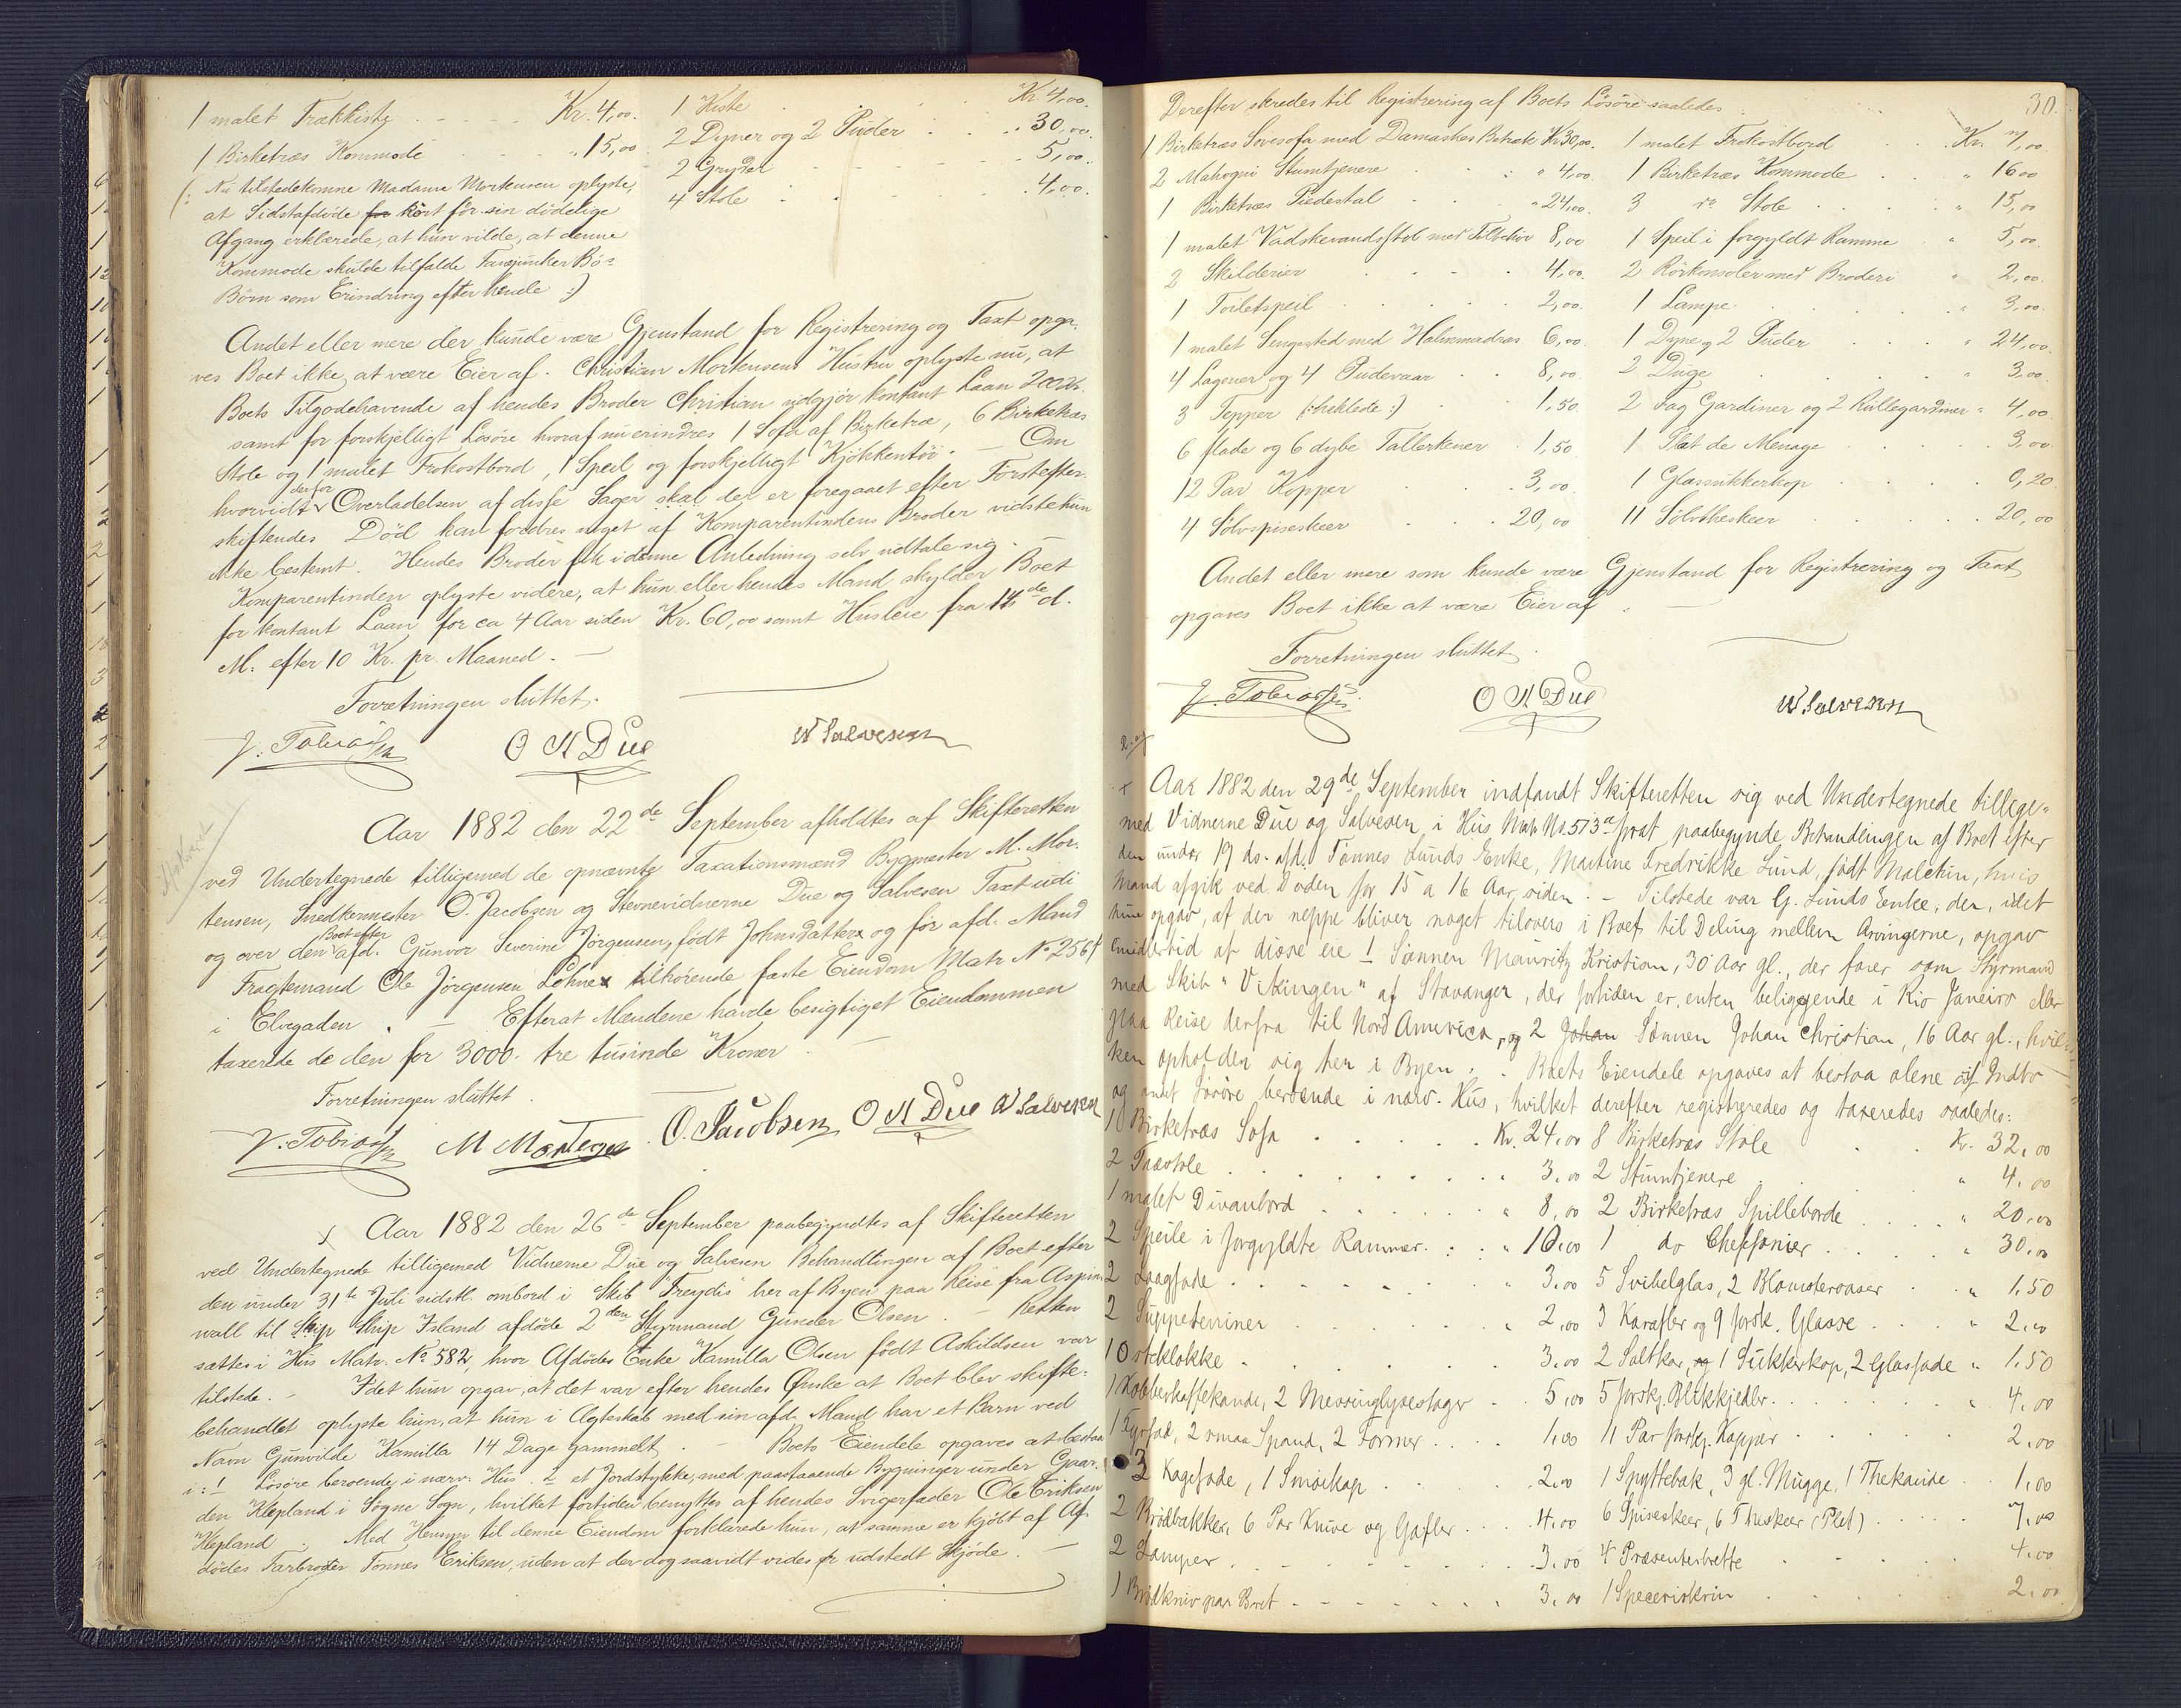 1 malet Trækkiste Kr. 4,00.
1 Birketræs Kommode " 15,00
(: Nu tilstedekomne Madame Mortensen oplyste,
at Sidstafdøde for kort før sin dødelige
Afgang erklærede, at hun vilde, at denne
Kommode skulde tilfalde
Børn som Erindring efter hende :)
1 Kiste Kr. 4,00.
2 Dyner og 2 Puder " 30,00.
2 Gryder 5,00.
4 Stole 4,00.
Andet eller mere der kunde være Gjenstand for Registrering og Taxt opga-
ves Boet ikke at være Eier af. Christian Mortensens Hustru oplyste nu, at
Boets Tilgodehavende af hendes Broder Christian udgjør kontant Laan 200 Kr.
samt for forskjelligt Løsøre hvoraf nu erindres 1 Sofa af Birketræ, 6 Birketræs
Stole og 1 malet Frokostbord, 1 Speil og forskjelligt Kjøkkentøi. — Om
hvorvidt derfor Overladelsen af disse Sager skal der er foregaaet efter Førstefter-
skiftendes Død kan fordres noget af Komparentindens Broder vidste hun
ikke bestemt. Hendes Broder fik i denne Anledning selv udtale sig. —
Komparentinden oplyste videre, at hun eller hendes Mand skylder Boet
for kontant Laan for ca 4 Aar siden Kr. 60,00 samt Husleie fra 14de d.
M. efter 10 Kr. pr. Maaned. —
Forretningen sluttet.
J. Tobiassen O N Due W Salvesen
Aar 1882 den 22de September afholdtes af Skifteretten
ved Undertegnede tilligemed de opnævnte Taxationsmænd Bygmester M. Mor-
tensen, Snedkermester O. Jacobsen og Stevnevidnerne Due og Salvesen Taxt udi
og over den Boet efter afd. Gunvor Severine Jørgensen, født Johnsdatter og før afd. Mand
Fragtemand Ole Jørgensen Lohne tilhørende faste Eiendom Matr No 256f
i Elvegaden. — Efterat Mændene havde besigtiget Eiendommen
taxerede de den for 3000. tre tusinde Kroner. —
Forretningen sluttet.
J. Tobiassen M Mortensen O. Jacobsen O N Due W Salvesen
x Aar 1882 den 26de September paabegyndtes af Skifteretten
ved Undertegnede tilligemed Vidnerne Due og Salvesen Behandlingen af Boet efter
den under 31te Juli sidstl. ombord i Skib "Freydis" her af Byen paa Reise fra Aspin-
wall til Ship Ship Island afdøde 2den Styrmand Gunder Olsen. — Retten
sattes i Hus Matr. No 582, hvor Afdødes Enke Kamilla Olsen født Askildsen var
tilstede. — Idet hun opgav, at det var efter hendes Ønske at Boet blev skifte-
behandlet oplyste hun, at hun i Ægteskab med sin afd. Mand har et Barn ved
Navn Gunvilde Kamilla 14 Dage gammelt. — Boets Eiendele opgaves at bestaa
i: 1 Løsøre beroende i nærv. Hus. 2 et Jordstykke, med paastaaende Bygninger under Gaar-
den Klepland i Søgne Sogn, hvilket fortiden benyttes af hendes Svigerfader Ole Eriksen
Klepland. Med Hensyn til denne Eiendom forklarede hun, at samme er kjøbt af Af-
dødes Farbroder Tønnes Eriksen, uden at der dog saavidt vides er udstedt Skjøde. —
30.
Derefter skredes til Registrering af Boets Løsøre saaledes
1 Birketræs Sovesofa med Damaskes Betræk Kr 30,00. 1 malet Frokostbord Kr. 7,00.
2 Mahogni Stumtjenere " 4,00. 1 Birketræs Kommode " 16 00
1 Birketræs Piedestal " 24,00. 3 do Stole " 15,00
1 malet Vadskevandsstol med Tilbehør 8,00 1 Speil i forgyldt Ramme " 5,00.
2 Skilderier 4,00. 2 Rørkonsoler med Broderi " 2,00.
1 Toiletspeil 2,00. 1 Lampe " 3,00.
1 malet Sengested med Halmmadras 6,00. 1 Dyne og 2 Puder " 24,00.
4 Lagener og 4 Pudevaar 8,00 2 Duge " 3,00.
3 Tepper (: heklede :) 1,50. 2 Fag Gardiner og 2 Rullegardiner " 4,00.
6 flade og 6 dybe Tallerkener 1,50. 1 Plat de Menage 3,00.
12 Par Kopper 3,00. 1 Glassukkerkop 0,20.
4 Sølvspiseskeer 20,00 11 Sølvtheskeer 20,00
Andet eller mere som kunde være Gjenstand for Registrering og Taxt
opgaves Boet ikke at være Eier af.
Forretningen sluttet.
J. Tobiassen O N Due W Salvesen
x Aar 1882 den 29de September indfandt Skifteretten sig ved Undertegnede tillige-
med Vidnerne Due og Salvesen i Hus Matr No. 573a forat paabegynde Behandlingen af Boet efter
den under 19 ds. afd. Tønnes Lunds Enke, Martine Fredrikke Lund, født Malthin, hvis
Mand afgik ved Døden for 15 a 16 Aar siden. — Tilstede var G. Lunds Enke, der, idet
hun opgav, at der neppe bliver noget tilovers i Boet til Deling mellem Arvingerne, opgav
imidlertid at disse ere 1 Sønnen Mauritz Kristian, 30 Aar gl., der farer som Styrmand
med Skib "Vikingen" af Stavanger, der fortiden er enten beliggende i Rio Janeiro eller
paa Reise derfra til Nord America, og 2 Johan Sønnen Johan Christian, 16 Aar gl., hvil-
ken opholder sig her i Byen. — Boets Eiendele opgaves at bestaa alene af Indbo
og andet Løsøre beroende i nærv. Hus, hvilket derefter registreredes og taxeredes saaledes:
1 Birketræs Sofa Kr. 24.00 8 Birketræs Stole Kr. 32,00
2 Taxstole " 3.00 2 Stumtjenere " 4.00
1 malet Divanbord " 8,00 2 Birketræs Spilleborde " 20,00
2 Speile i forgyldte Rammer " 10.00 1 do Cheffonier " 30,00
2 Laagfade " 3.00 5 Svibelglas, 2 Blomstervaser " 1,50
2 Suppeterriner " 2,00 3 Karafler og 9 forsk. Glasse " 2,00
1 Osteklokke 3.00 2 Saltkar, og 1 Sukkerkop, 2 Glasfade " 1.50
1 Kobberkaffekande, 2 Messinglysestager 5,00 5 forskj. Blikkjedler " 4.00
1 Fyrfad, 2 smaa Spand, 2 Former 1,00 11 Par forskj. Kopper 2.00
3 Kagefade, 1 Smørkop 2.00 1 Spyttebak, 3 gl. Mugge, 1 Thekande 1,00
2 Brødbakker, 6 Par Knive og Gafler 4.00 6 Spiseskeer, 6 Theskeer (Plet) 7,00
2 Lamper 3,00 4 Præsenterbrette 4.00
1 Brødkniv paa Bret 3,00 1 Speceriskrin 2,00